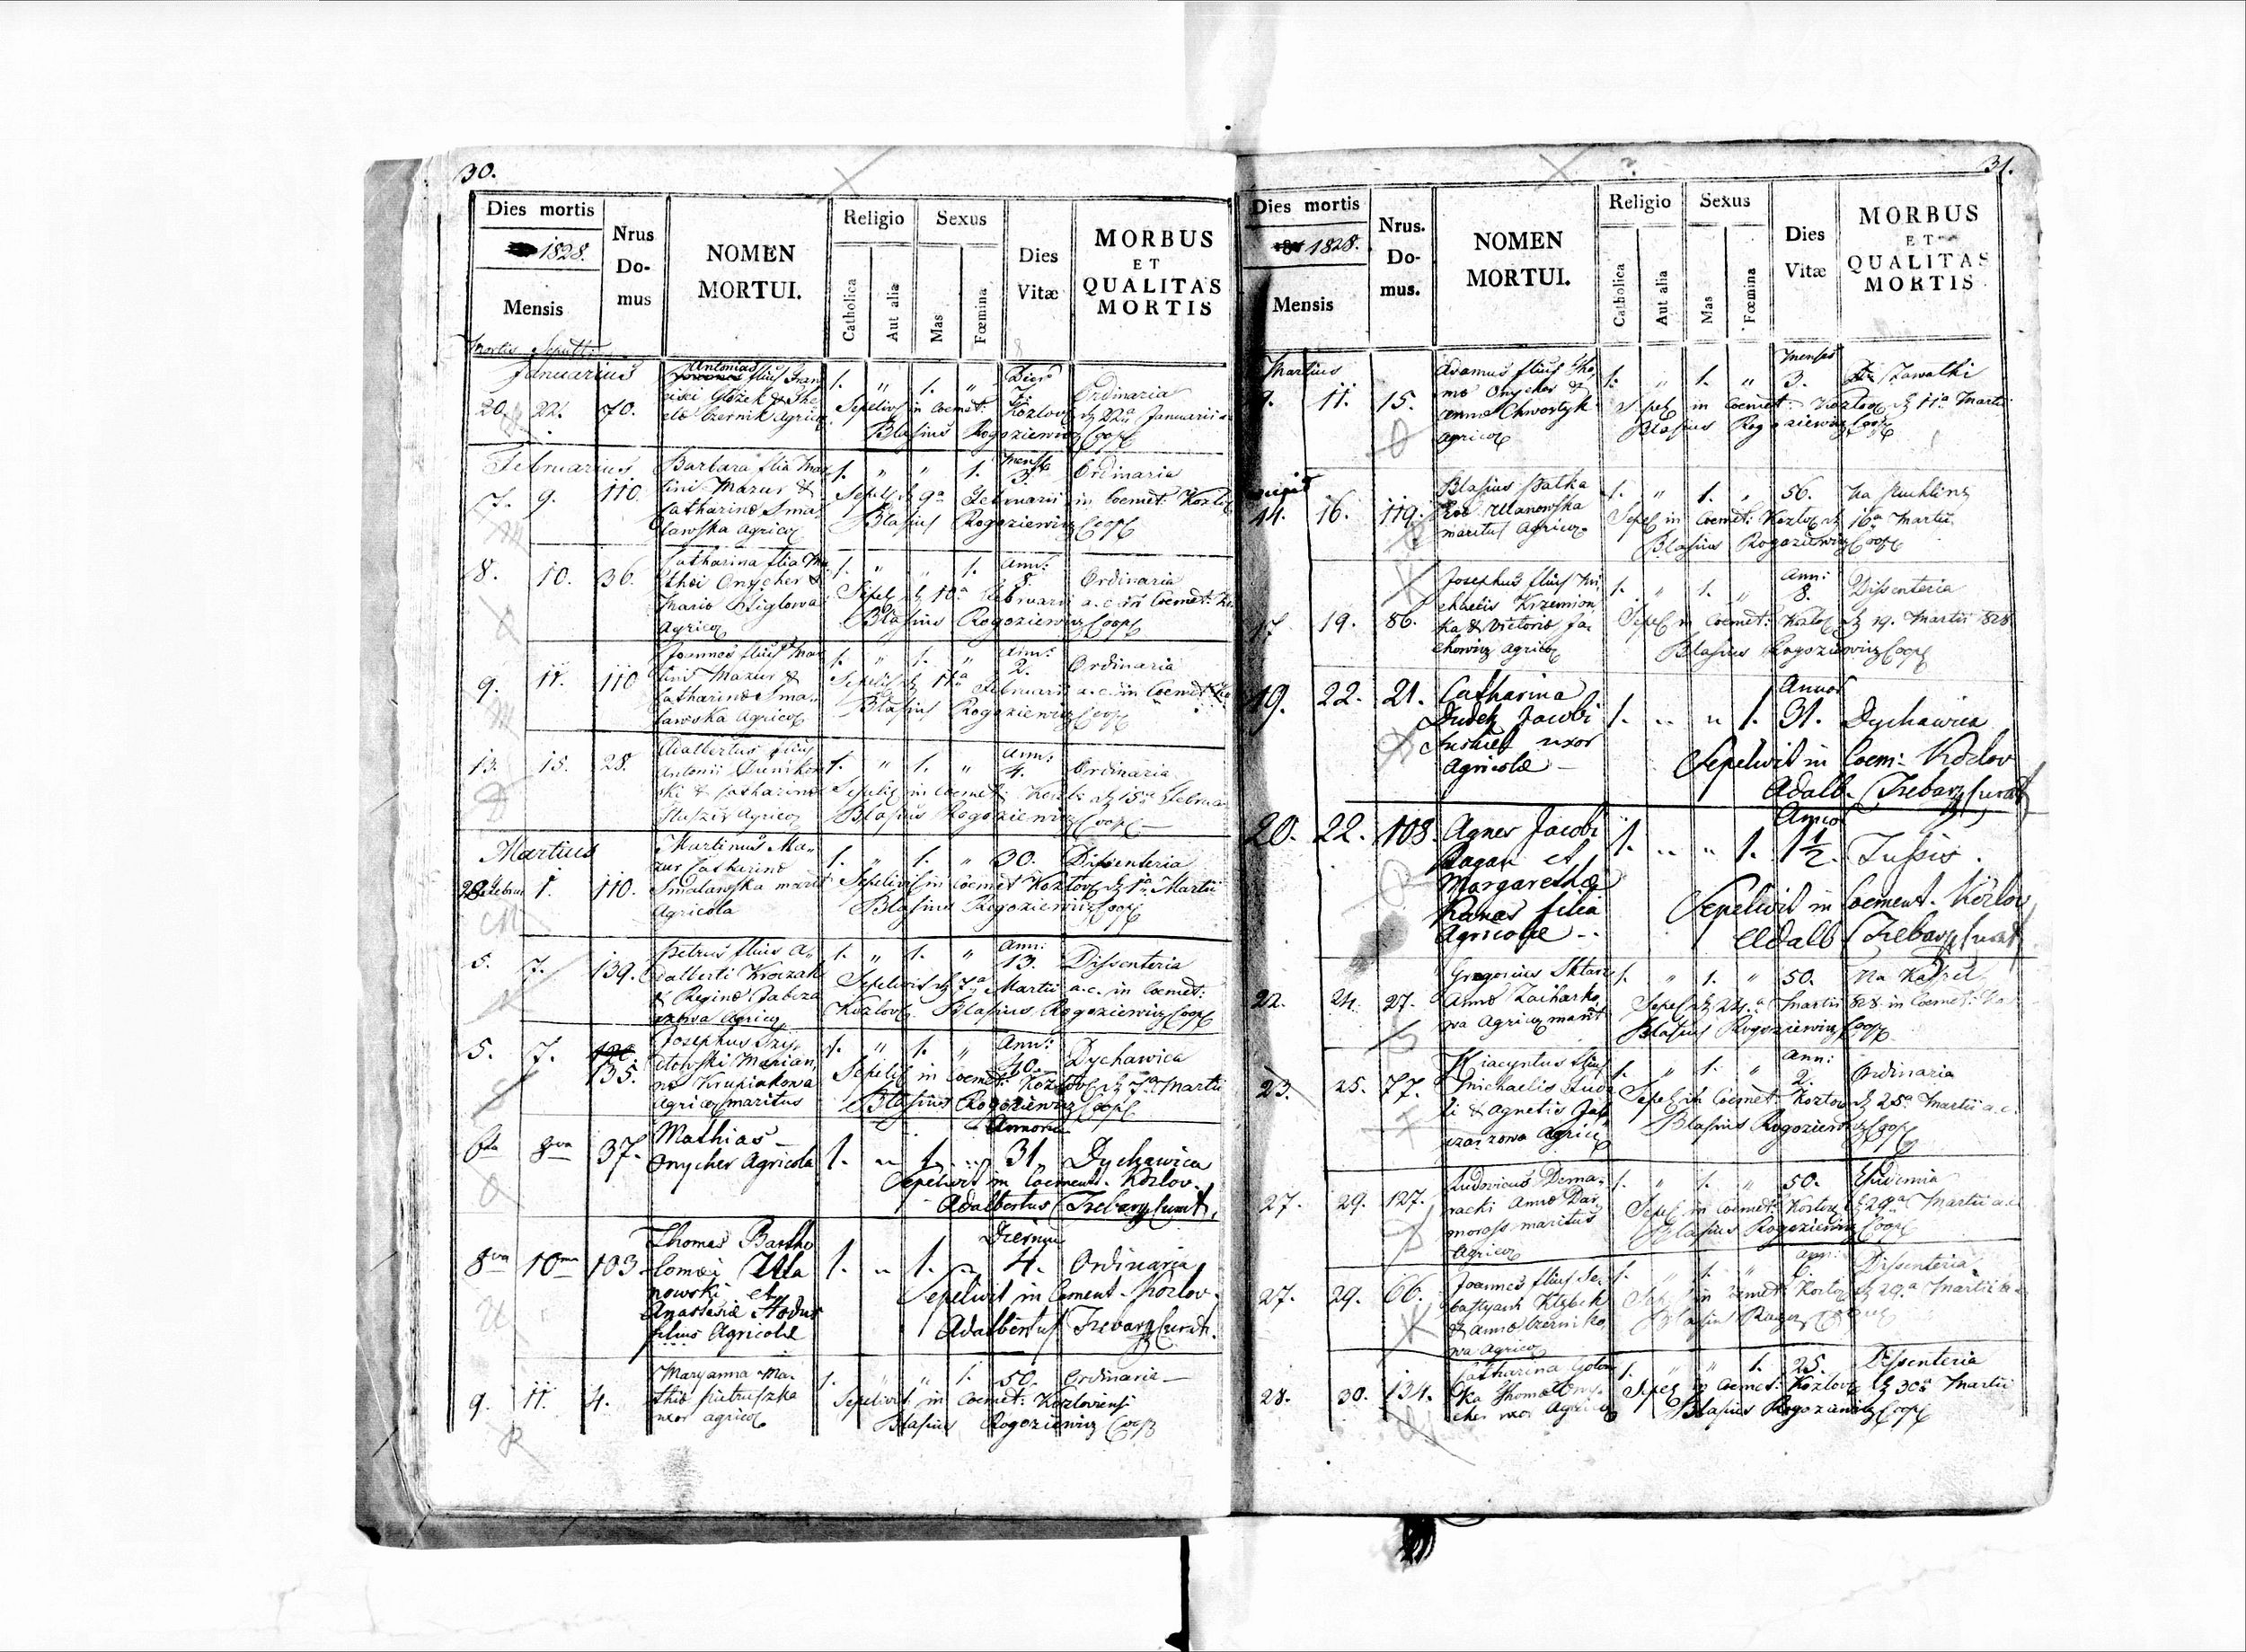 30.
Dies mortis
1828.
Mensis
Mortis Sepult:
Nrus
Do-
mus
NOMEN
MORTUI.
Religio
Catholica
Aut alia
Sexus
Mas
Fœmina
Dies
Vitæ
MORBUS
ET
QUALITAS
MORTIS
Januarius
20. 22. 70.
Antonius filius Fran
Czernik Agric
1. " 1. "
Dier
7.
Ordinaria
Sepelivit in Coemet: Kozlov d 22a Januarii
Blasius Rogoziewicz Coop
Februarius
7. 9. 110.
Barbara filia Mar
tini Mazur &
Catharina Sma
lawska agric
1. " " 1.
Mens
3.
Ordinaria
9a Februarii in Coemet: Kozlo
Blasius Rogoziewicz Coop
8. 10. 36.
Catharina filia Ma
thei Onycher &
Agric
1. " " 1.
Ann:
8.
Ordinaria
Sepel d 10a Februarii a.c. in Coemet:
Blasius Rogoziewicz Coop
9. 11. 110
Joannes filius Mar
tini Mazur &
Catharina Sma-
lawska agric
1. " 1. "
Ann:
2.
Ordinaria
Sepel d 11a Februarii a.c. in Coemet
Blasius Rogoziewicz Coop
13. 15. 28.
Adalbertus filius
Antonii Dunikow
ski & Catharina
Agric
1. " 1. "
Ann:
4.
Ordinaria
Sepel in Coemet: d 15a Februa
Blasius Rogoziewicz Coop
Martius
1. 110.
Martinus Ma-
zur Catharina
Smalawska marit
Agricola
1. " 1. " 30. Dissenteria
Sepelivit in Coemet Kozlov d 1a Martii
Blasius Rogoziewicz Coop
5. 7. 139.
Petrus filius A-
dalberti Kroczak
& Regina
agric
1. " 1. "
Ann:
13.
Dissenteria
Sepelivit d 7a Martii a.c. in Coemet:
Kozlov Blasius Rogoziewicz Coop
5. 7. 135.
Josephus Szy
dlowski Marian
na Krupiakowa
Agric maritus
1. " 1. "
Ann:
40.
Dychawica
Sepel in Coemet: Kozlov d 7a Martii
Blasius Rogoziewicz Coop
6ta 8va 37.
Mathias
Onycher Agricola
1. " 1. "
Annoru
31
Dychawica
Sepelivit in Coement. Kozlov.
Adalbertus Trebacz Curat.
8va 10ma 103
Thomas Bartho
lomei Ula
nowski et
Anastasiæ Hodur
filius Agricolæ
1. " 1. "
Dierum
4.
Ordinaria
Sepelivit in Cement. Kozlov.
Adalbertus Trebacz Curat.
9. 11. 4.
Maryanna Ma-
thia Pietruszka
uxor agric
1. " " 1. 50. Ordinaria
Sepelivit in Coemet: Kozloviensi
Blasius Rogoziewicz Coop
31.
Dies mortis
1828.
Mensis
Nrus.
Do-
mus.
NOMEN
MORTUI.
Religio
Catholica
Aut alia
Sexus
Mas
Fœmina
Dies
Vitæ
MORBUS
ET
QUALITAS
MORTIS
Martius
9. 11. 15.
Adamus filius Tho
ma Onycher &
Anna Chwostyk
agric
1. " 1. "
Menses
3.
Zawalki
Sepel in Coemet: Kozlov d 11a Martii
Blasius Rogoziewicz Coop
14. 16. 119.
Blasius Patka
Ulanowska
maritus Agric
1. " 1. " 56.
Sepel in Coemet: Kozlov d 16a Martii
Blasius Rogoziewicz Coop
17 19. 86.
Josephus filius Mi
chaelis Krzemion
ka & Victoria Ja-
chowicz agric
1. " 1. "
Ann:
8.
Dissenteria
Sepel in Coemet: Kozlov d 19. Martii 1828
Blasius Rogoziewicz Coop
19. 22. 21.
Catharina
Dudek Jacobi
uxor
Agricolæ
1. " " 1.
Annor
31.
Dychawica
Sepelivit in Coem: Kozlov
Adalb. Trebacz Curat
20. 22. 108.
Agnes Jacobi
Ragan et
Margarethæ
Kanas filia
Agricolæ
1. " " 1.
1 1/2.
Tussis.
Sepelivit in Coement. Kozlov
Adalb Trebacz Curat
22. 24. 27.
Gregorius
Anna Zacharko
wa agric marit
1. " 1. " 50. Na Kaszel
Sepel d 24a Martii 828 in Coemet:
Blasius Rogoziewicz Coop
23. 25. 77.
Hiacyntus filius
Michaelis
& Agnetis
agric
1. " 1. "
Ann:
2.
Ordinaria
Sepel in Coemet: Kozlov d 25a Martii a.c.
Blasius Rogoziewicz Coop
27. 29. 127.
Ludovicus Doma-
racki Anna Dar
moross maritus
Agric
1. " 1. " 50.
Sepel in Coemet: Kozlov d 29a Martii a.c.
Blasius Rogoziewicz Coop
27. 29. 66.
Joannes filius Se-
bastyani Klębek
& Anna Czerniko
wa Agric
1. " 1. "
Ann:
6.
Dissenteria
Kozlov d 29a Martii
28. 30. 134.
Catharina Golon
ka Thoma Ony-
cher uxor Agric
1. " " 1. 25. Dissenteria
Sepel in Coemet: Kozlov d 30a Martii
Blasius Rogoziewicz Coop